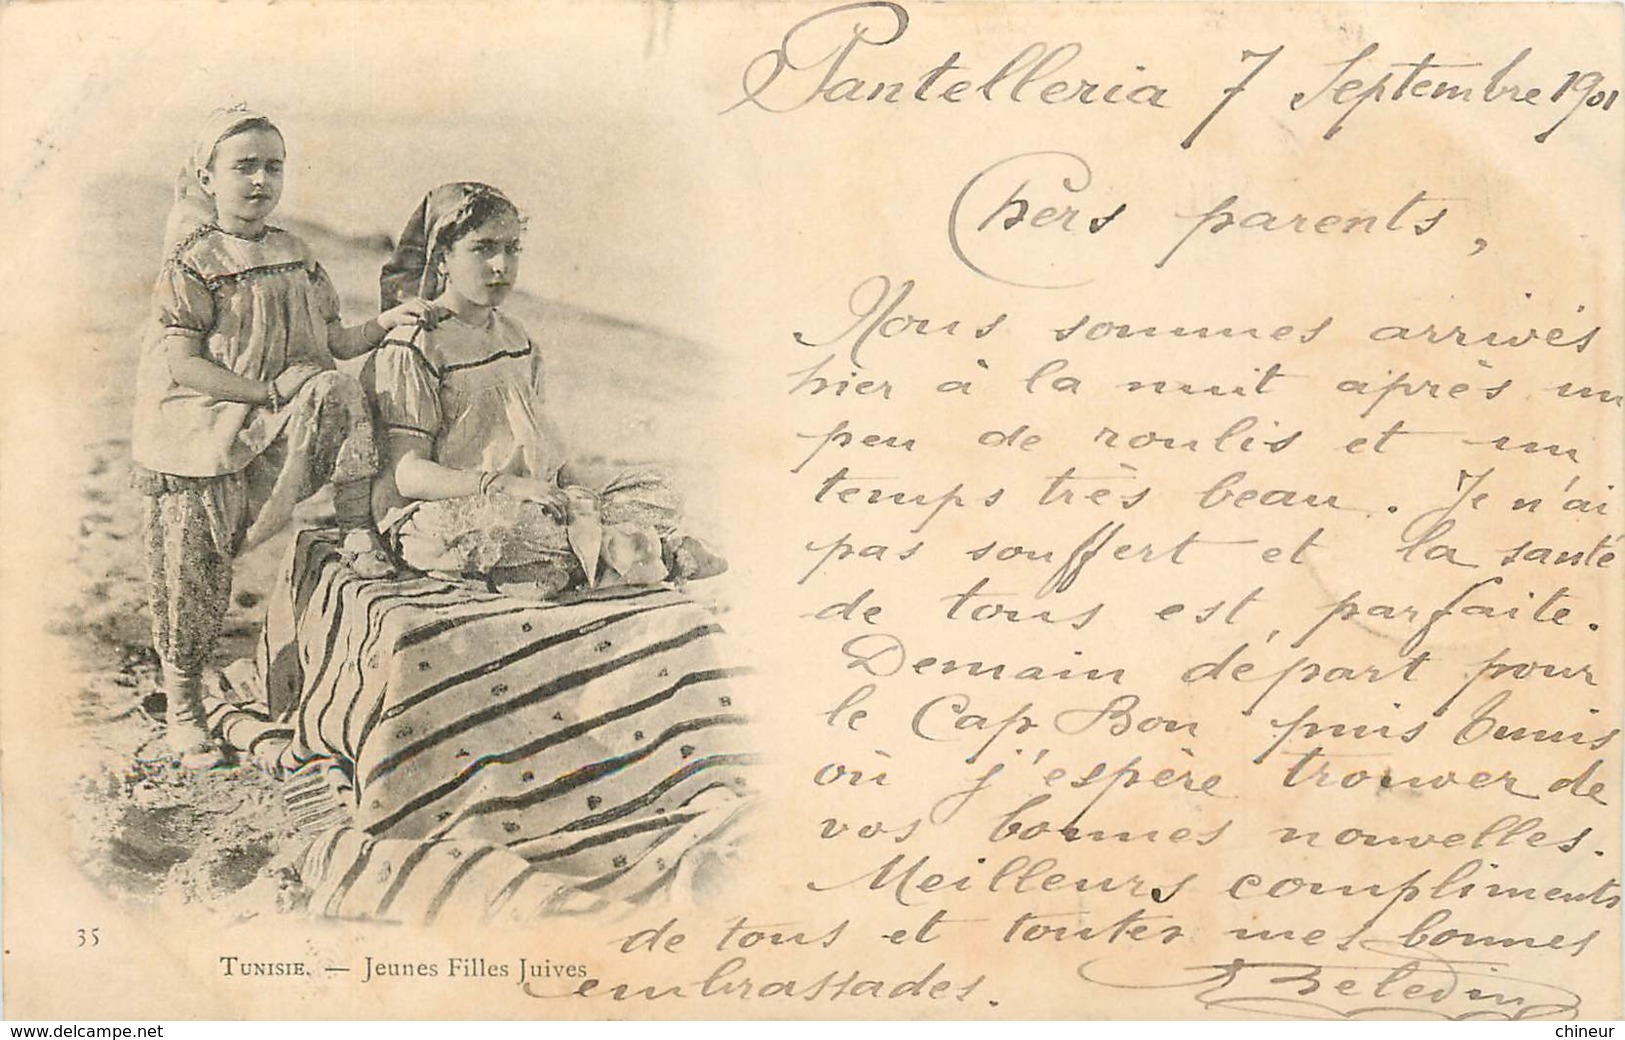 Pantelleria 7 Septembre 1901
Chers parents,
Nous sommes arrivés
hier à la nuit après un
peu de roulis et un
temps très beau. Je n'ai
pas souffert et la santé
de tous est parfaite.
Demain départ pour
le Cap Bon puis Tunis
où j'espère trouver de
vos bonnes nouvelles.
Meilleurs compliments
de tous et toutes mes bonnes
embrassades.
35
TUNISIE. — Jeunes Filles Juives
delcampe.net
chineur